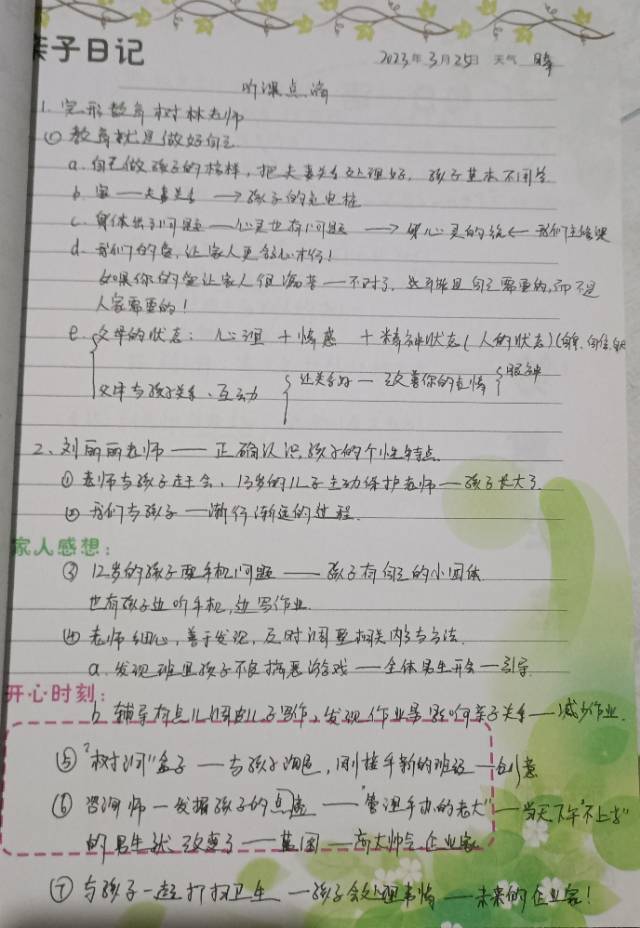 亲子日记
2023年3月25日 天气 晴
听课点滴
1. 完形教育树林老师
① 教育就是做好自己
a. 自己做孩子的榜样，把夫妻关系处理好，孩子基本不用管
b. 家——夫妻关系 → 孩子的充电桩
c. 身体出了问题——心灵也有问题 → 
d. 我们的爱，让家人更舒心才行！
如果你的爱让家人很痛苦——不对了，是自己需要的，而不是
人家需要的！
e. 父母的状态：心理 + 情感 + 精神状态（人的状态）
父母与孩子关系、互动 让关系好—改善你的 眼神
2、刘丽丽老师——正确认识孩子的个性特点
① 老师与孩子，13岁的儿子主动保护老师——孩子长大了
② 我们与孩子——渐行渐远的过程
家人感想：
③ 12岁的孩子要手机问题——孩子有自己的小团体
也有孩子边听手机，边写作业
④ 老师细心，善于发现，及时调整相关内容与方法
a. 发现班里孩子不良搞恶游戏——全体男生开会—引导
开心时刻：
b 辅导有点儿调皮儿子写作，发现作业影响亲子关系——减少作业.
⑤ "树洞"盒子——与孩子，刚接手新的班级—创意
⑥ 咨询师—发掘孩子的点——"管理手办的老大"—当天下午"不上学"
的男生就改变了——英国——高大帅气企业家
⑦ 与孩子一起打扫卫生—孩子会处理事情——未来的企业家！